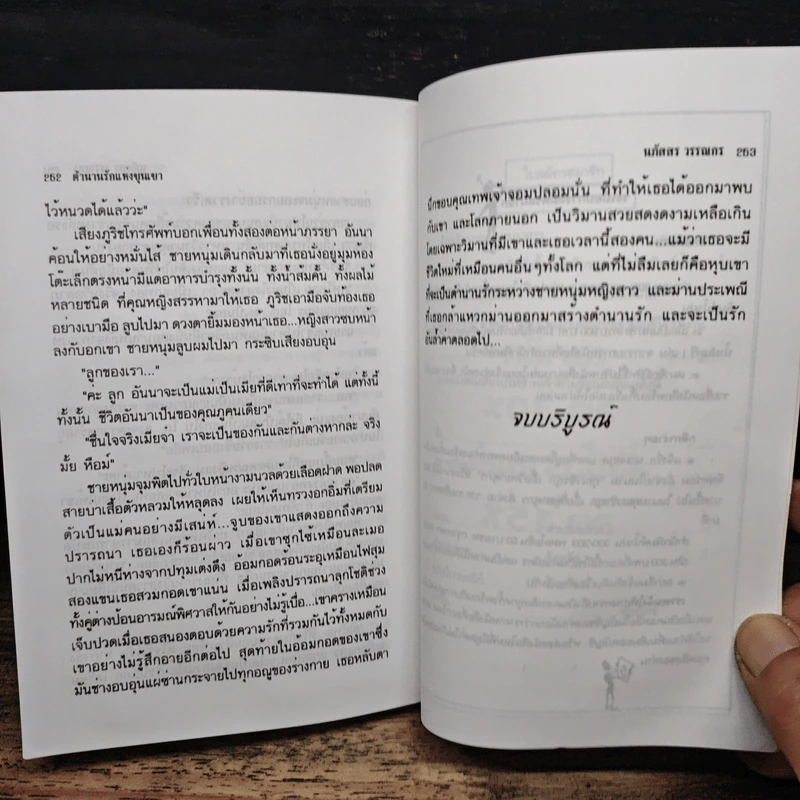 262 ตำนานรักแห่งขุนเขา
ไว้หนวดได้แล้วว่ะ"
เสียงภูริชโทรศัพท์บอกเพื่อนทั้งสองต่อหน้าภรรยา อันนา
ค้อนให้อย่างหมั่นไส้ ชายหนุ่มเดินกลับมาที่เธอนั่งอยู่มุมห้อง
โต๊ะเล็กตรงหน้ามีแต่อาหารบำรุงทั้งนั้น ทั้งน้ำส้มคั้น ทั้งผลไม้
หลายชนิด ที่คุณหญิงสรรหามาให้เธอ ภูริชเอามือจับท้องเธอ
อย่างเบามือ ลูบไปมา ดวงตายิ้มมองหน้าเธอ...หญิงสาวซบหน้า
ลงกับอกเขา ชายหนุ่มลูบผมไปมา กระซิบเสียงอบอุ่น
"ลูกของเรา..."
"ค่ะ ลูก อันนาจะเป็นแม่เป็นเมียที่ดีเท่าที่จะทำได้ แต่ทั้งนี้
ทั้งนั้น ชีวิตอันนาเป็นของคุณภูคนเดียว"
"ชื่นใจจริงเมียจ๋า เราจะเป็นของกันและกันต่างหากล่ะ จริง
มั้ย หือม์"
ชายหนุ่มจุมพิตไปทั่วใบหน้างามนวลด้วยเลือดฝาด พอปลด
สายบ่าเสื้อตัวหลวมให้หลุดลง เผยให้เห็นทรวงอกอิ่มที่เตรียม
ตัวเป็นแม่คนอย่างมีเสน่ห์...จูบของเขาแสดงออกถึงความ
ปรารถนา เธอเองก็ร้อนผ่าว เมื่อเขาซุกไซ้เหมือนละเมอ
ปากไม่หนีห่างจากปทุมเต่งตึง อ้อมกอดร้อนระอุเหมือนไฟสุม
สองแขนเธอสวมกอดเขาแน่น เมื่อเพลิงปรารถนาลุกโชติช่วง
ทั้งคู่ต่างป้อนอารมณ์พิศวาสให้กันอย่างไม่รู้เบื่อ...เขาครางเหมือน
เจ็บปวดเมื่อเธอสนองตอบด้วยความรักที่รวมกันไว้ทั้งหมดกับ
เขาอย่างไม่รู้สึกอายอีกต่อไป สุดท้ายในอ้อมกอดของเขาซึ่ง
มันช่างอบอุ่นแผ่ซ่านกระจายไปทุกอณูของร่างกาย เธอหลับตา
นภัสสร วรรณกร 263
นึกขอบคุณเทพเจ้าจอมปลอมนั่น ที่ทำให้เธอได้ออกมาพบ
กับเขา และโลกภายนอก เป็นวิมานสวยสดงดงามเหลือเกิน
โดยเฉพาะวิมานที่มีเขาและเธอเวลานี้สองคน...แม้ว่าเธอจะมี
ชีวิตใหม่ที่เหมือนคนอื่นๆทั้งโลก แต่ที่ไม่ลืมเลยก็คือหุบเขา
ที่จะเป็นตำนานรักระหว่างชายหนุ่มหญิงสาว และม่านประเพณี
ที่เธอกล้าแหวกม่านออกมาสร้างตำนานรัก และจะเป็นรัก
อันล้ำค่าตลอดไป...
จบบริบูรณ์